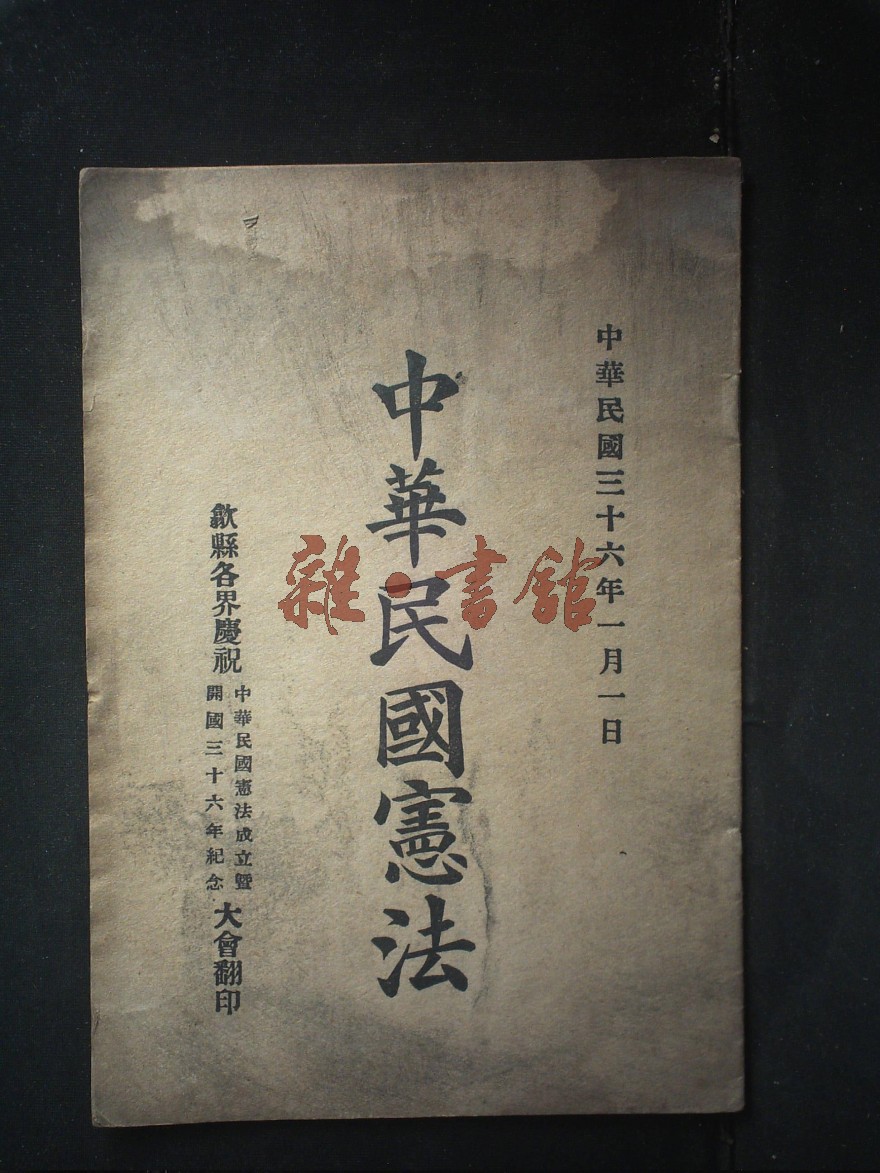 中華民國三十六年一月一日
中華民國憲法
歙縣各界慶祝
中華民國憲法成立暨
開國三十六年紀念
大會翻印
雜·書館